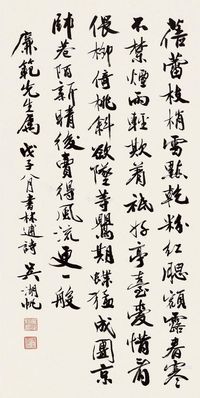 蓓蕾枝梢雪點乾粉紅腮頰露春寒
不禁煙雨輕欺着祇好亭臺愛惜看
偎柳倚桃斜欲墜等鶯期蝶猛成團京
師巷陌新晴後賣得風流更一般
廉範先生屬 戊子八月書林逋詩 吳湖帆